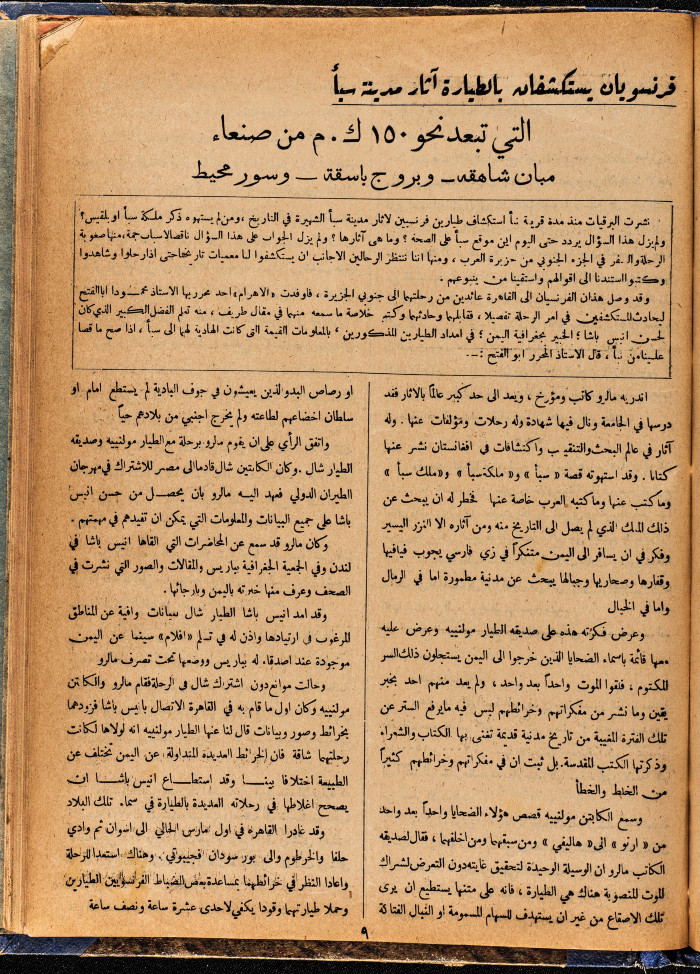 فرنسويان يستكشفان بالطيارة آثار مدينة سبأ
التي تبعد نحو ١٥٠ ك . م من صنعاء
مبان شاهقه ــ وبروج باسقة ــ وسور محيط
نشرت البرقيات منذ مدة قريبة نبأ استكشاف طيارين فرنسيين لآثار مدينة سبأ الشهيرة في التاريخ ، ومن لم يستهوه ذكر ملكة سبأ او بلقيس؟
ولم يزل هذا السؤال يردد حتى اليوم اين موقع سبأ على الصحة ؟ وما هي آثارها ؟ ولم يزل الجواب على هذا السؤال ناقصا لاسباب جمة ، منها صعوبة
الرحلة والسفر في الجزء الجنوبي من جزيرة العرب ، ومنها اننا ننتظر الرحالين الاجانب ان يستكشفوا لنا معميات تاريخنا حتى اذا رحلوا وشاهدوا
وكتبوا استندنا الى اقوالهم واستقينا من ينبوعهم .
وقد وصل هذان الفرنسيان الى القاهرة عائدين من رحلتهما الى جنوبي الجزيرة ، فاوفدت «الاهرام» احد محرريها الاستاذ محمودا ابا الفتح
ليحادث المستكشفين في امر الرحلة تفصيلا ، فقابلهما وحادثهما وكتب خلاصة ما سمعه منهما في مقال طريف ، منه تعلم الفضل الكبير الذي كان
لحسن انيس باشا ؛ الخبير بجغرافية اليمن ؛ في امداد الطيارين المذكورين ، بالمعلومات القيمة التي كانت الهادية لهما الى سبأ ، اذا صح ما قصا
علينا من نبأ ، قال الاستاذ المحرر ابو الفتح :ــ
اندريه مالرو كاتب ومؤرخ ، ويعد الى حد كبير عالما بالاثار فقد
درسها في الجامعة ونال فيها شهادة وله رحلات ومؤلفات عنها . وله
آثار في عالم البحث والتنقيب واكتشافات في افغانستان نشر عنها
كتابا . وقد استهوته قصة « سبأ » و« ملكة سبأ » و« ملك سبأ »
وما كتب عنها وما كتبه العرب خاصة عنها فخطر له ان يبحث عن
ذلك الملك الذي لم يصل الى التاريخ منه ومن آثاره الا النزر اليسير
وفكر في ان يسافر الى اليمن متنكراً في زي فارسي يجوب فيافيها
وقفارها وصحاريها وجبالها يبحث عن مدنية مطمورة اما في الرمال
واما في الخيال
وعرض فكرته هذه على صديقه الطيار مولنييه وعرض عليه
معها قائمة باسماء الضحايا الذين خرجوا الى اليمن يستجلون ذلك السر
المكتوم ، فلقوا الموت واحداً بعد واحد ، ولم يعد منهم احد بخبر
يقين وما نشر من مفكراتهم وخرائطهم ليس فيه ما يرفع الستر عن
تلك الفترة المغيبة من تاريخ مدنية قديمة تغنى بها الكتاب والشعراء
وذكرتها الكتب المقدسة. بل ثبت ان في مفكراتهم وخرائطهم كثيراً
من الخلط والخطأ
وسمع الكابتن مولنييه قصص هؤلاء الضحايا واحداً بعد واحد
من « ارنو » الى « هاليفي » ومن سبقهما ومن اخلفهما ، فقال لصديقه
الكاتب مالرو ان الوسيلة الوحيدة لتحقيق غايته دون التعرض لشراك
الموت المنصوبة هناك هي الطيارة ، فانه على متنها يستطيع ان يرى
تلك الاصقاع من غير ان يستهدف للسهام المسمومة او النبال الفتاكة
او رصاص البدو الذين يعيشون في جوف البادية لم يستطع امام او
سلطان اخضاعهم لطاعته ولم يخرج اجنبي من بلادهم حياً
واتفق الرأي على ان يقوم مالرو برحلة مع الطيار مولنييه وصديقه
الطيار شال . وكان الكابتن شال قادما الى مصر للاشتراك في مهرجان
الطيران الدولي فعهد اليه مالرو بان يحصل من حسن انيس
باشا على جميع البيانات والمعلومات التي يمكن ان تفيدهم في مهمتهم .
وكان مالرو قد سمع عن المحاضرات التي القاها انيس باشا في
لندن وفي الجمعية الجغرافية بباريس والمقالات والصور التي نشرت في
الصحف وعرف منها خبرته باليمن وبارجائها .
وقد امد انيس باشا الطيار شال ببيانات وافية عن المناطق
المرغوب في ارتيادها واذن له في تسلم «افلام» سينما عن اليمن
موجودة عند اصدقاء له بباريس ووضعها تحت تصرف مالرو
وحالت موانع دون اشتراك شال في الرحلة فقام مالرو والكابتن
مولنييه وكان اول ما قام به في القاهرة الاتصال بانيس باشا فزودهما
بخرائط وصور وبيانات قال لنا عنها الطيار مولنييه انه لولاها لكانت
رحلتهما شاقة فان الخرائط العديدة المتداولة عن اليمن تختلف عن
الطبيعة اختلافا بينا وقد استطاع انيس باشا ان
يصحح اغلاطها في رحلاته العديدة بالطيارة في سماء تلك البلاد
وقد غادرا القاهرة في اول مارس الحالي الى اسوان ثم وادي
حلفا والخرطوم والى بور سودان فجيبوتي . وهناك استعدا للرحلة
واعادا النظر في خرائطهما بمساعدة بعض الضباط الفرنسويين الطيارين
وحملا طيارتهما وقودا يكفي لاحدى عشرة ساعة ونصف ساعة
٩